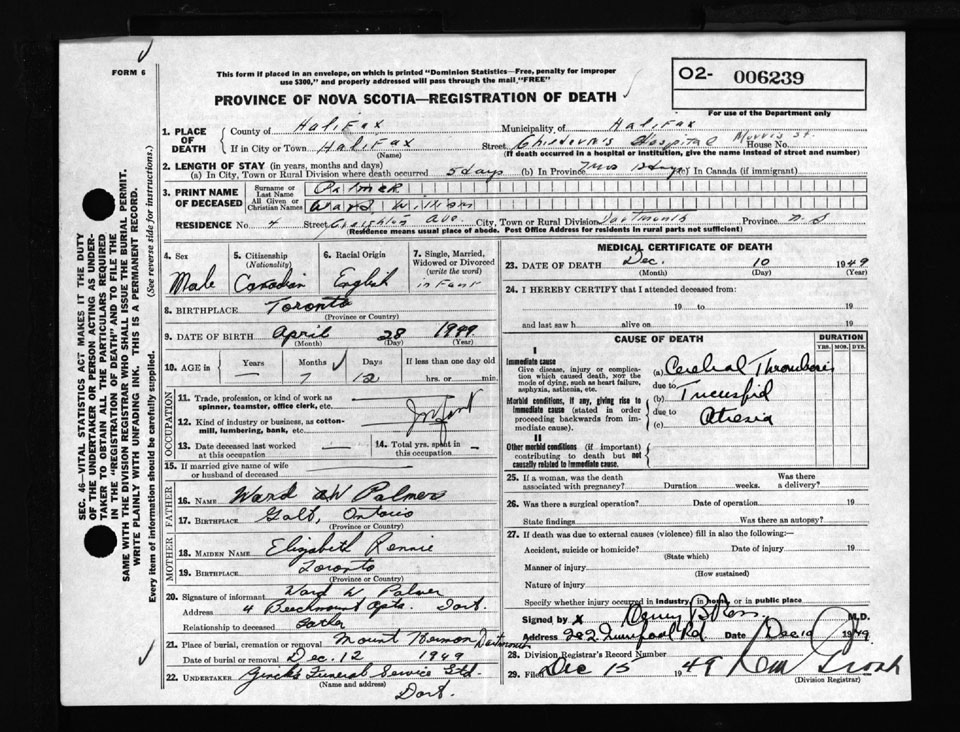 FORM 6
This form if placed in an envelope, on which is printed "Dominion Statistics—Free, penalty for improper
use $300," and properly addressed will pass through the mail "FREE"
O2- 006239
PROVINCE OF NOVA SCOTIA—REGISTRATION OF DEATH
For use of the Department only
1. PLACE OF DEATH
County of Halifax Municipality of Halifax
If in City or Town Halifax Street Children's Hospital House No. Morris St.
(Name) (If death occurred in a hospital or institution, give the name instead of street and number)
2. LENGTH OF STAY (in years, months and days)
(a) In City, Town or Rural Division where death occurred 5 days (b) In Province (c) In Canada (if immigrant)
3. PRINT NAME OF DECEASED
Surname or Last Name Palmer
All Given or Christian Names Ward William
RESIDENCE No. 4 Street Creighton Ave. City, Town or Rural Division Dartmouth Province N.S
(Residence means usual place of abode. Post Office Address for residents in rural parts not sufficient)
4. Sex Male
5. Citizenship (Nationality) Canadian
6. Racial Origin English
7. Single, Married, Widowed or Divorced (write the word) infant
8. BIRTHPLACE Toronto
(Province or Country)
9. DATE OF BIRTH April 28 1949
(Month) (Day) (Year)
10. AGE in Years Months Days If less than one day old
— 7 12 hrs. or min.
OCCUPATION
11. Trade, profession, or kind of work as
spinner, teamster, office clerk, etc.
12. Kind of industry or business, as cotton-
mill, lumbering, bank, etc.
Infant
13. Date deceased last worked
at this occupation
14. Total yrs. spent in
this occupation
15. If married give name of wife
or husband of deceased
FATHER
16. NAME Ward W Palmer
17. BIRTHPLACE Galt, Ontario
(Province or Country)
MOTHER
18. MAIDEN NAME Elizabeth Rennie
19. BIRTHPLACE Toronto
(Province or Country)
20. Signature of informant Ward W Palmer
Address 4 Beechmount Apts. Dart.
Relationship to deceased Father
21. Place of burial, cremation or removal Mount Hermon Dartmouth
Date of burial or removal Dec. 12 1949
22. UNDERTAKER Funeral Service Ltd.
(Name and address) Dart.
MEDICAL CERTIFICATE OF DEATH
23. DATE OF DEATH Dec. 10 1949
(Month) (Day) (Year)
24. I HEREBY CERTIFY that I attended deceased from:
19 to 19
and last saw h alive on 19
CAUSE OF DEATH
DURATION
YRS. MOS. DYS.
I
Immediate cause
Give disease, injury or complica-
tion which caused death, NOT the
mode of dying, such as heart failure,
asphyxia, asthenia, etc.
(a) Cerebral Thrombosis
due to
Morbid conditions, if any, giving rise to
immediate cause (stated in order
proceeding backwards from im-
mediate cause).
(b) Tricuspid
due to
(c) Atresia
II
Other morbid conditions (if important)
contributing to death but not
causally related to immediate cause.
25. If a woman, was the death
associated with pregnancy? Duration weeks. Was there
a delivery?
26. Was there a surgical operation? Date of operation 19
State findings Was there an autopsy?
27. If death was due to external causes (violence) fill in also the following:—
Accident, suicide or homicide? Date of injury 19
(State which)
Manner of injury
(How sustained)
Nature of injury
Specify whether injury occurred in industry, in home, or in public place
Signed by X B Ross M.D.
Address 282 Rd Date Dec 10 1949
28. Division Registrar's Record Number
29. Filed Dec 15 1949
(Division Registrar)
SEC. 46—VITAL STATISTICS ACT MAKES IT THE DUTY
OF THE UNDERTAKER OR PERSON ACTING AS UNDER-
TAKER TO OBTAIN ALL THE PARTICULARS REQUIRED
IN THE "REGISTRATION OF DEATH" AND TO FILE THE
SAME WITH THE DIVISION REGISTRAR WHO SHALL ISSUE THE BURIAL PERMIT.
WRITE PLAINLY WITH UNFADING INK. THIS IS A PERMANENT RECORD.
Every item of information should be carefully supplied. (See reverse side for instructions.)